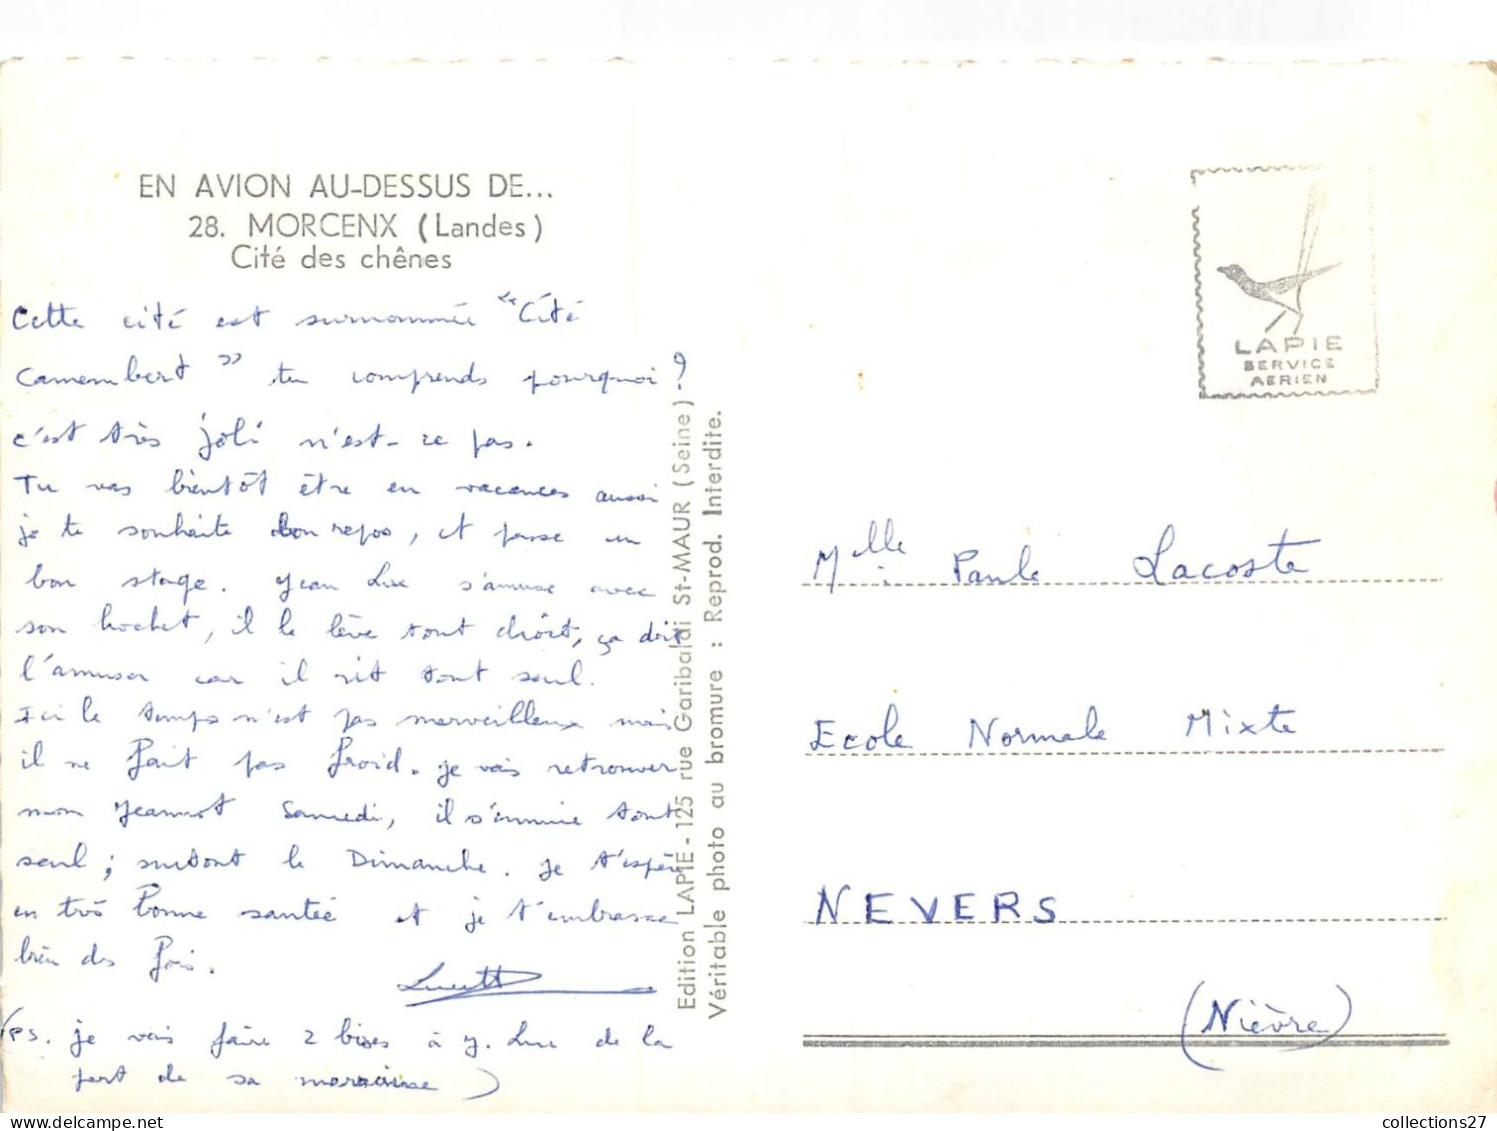 EN AVION AU-DESSUS DE...
28. MORCENX (Landes)
Cité des chênes
Cette cité est surnommée "Cité
Camembert" tu comprends pourquoi ?
c'est très joli n'est-ce pas.
Tu vas bientôt être en vacances aussi
je te souhaite bon repos, et passe un
bon stage. Jean Luc s'amuse avec
son hochet, il le lève tout droit, ça doit
l'amuser car il rit tout seul.
Ici le temps n'est pas merveilleux mais
il ne fait pas froid. je vais retrouver
mon Jeannot Samedi, il s'ennuie tout
seul ; surtout le Dimanche. je t'espère
en très bonne santée et je t'embrasse
bien des fois.
Lucette
(PS. je vais faire 2 bises à J. Luc de la
part de sa marraine)
Edition LAPIE - 125 rue Garibaldi St-MAUR (Seine)
Véritable photo au bromure : Reprod. Interdite.
LAPIE
SERVICE
AERIEN
Melle Paule Lacoste
Ecole Normale Mixte
NEVERS
(Nièvre)
collections27